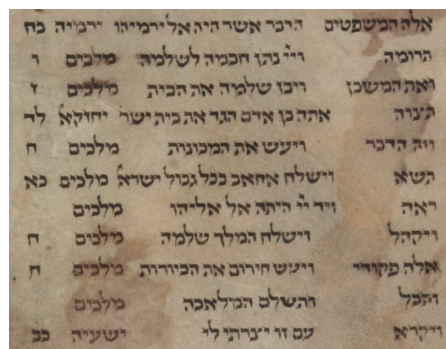 אלה המשפטים הדבר אשר היה אל ירמיהו ירמיה כח
תרומה ויי נתן חכמה לשלמה מלכים ו
ואת המשכן ויבן שלמה את הבית מלכים ז
תצוה אתה בן אדם הגד את בית ישר יחזקא לד
וזה הדבר ויעש את המכונות מלכים ח
תשא וישלח אחאב בכל גבול ישרא מלכים כא
ראה ויד יי היתה אל אליהו מלכים
ויקהל וישלח המלך שלמה מלכים ח
אלה פקודי ויעש חירום את הכיורות מלכים ח
והכל ותשלם המלאכה מלכים
ויקרא עם זו יצרתי לי ישעיה כב